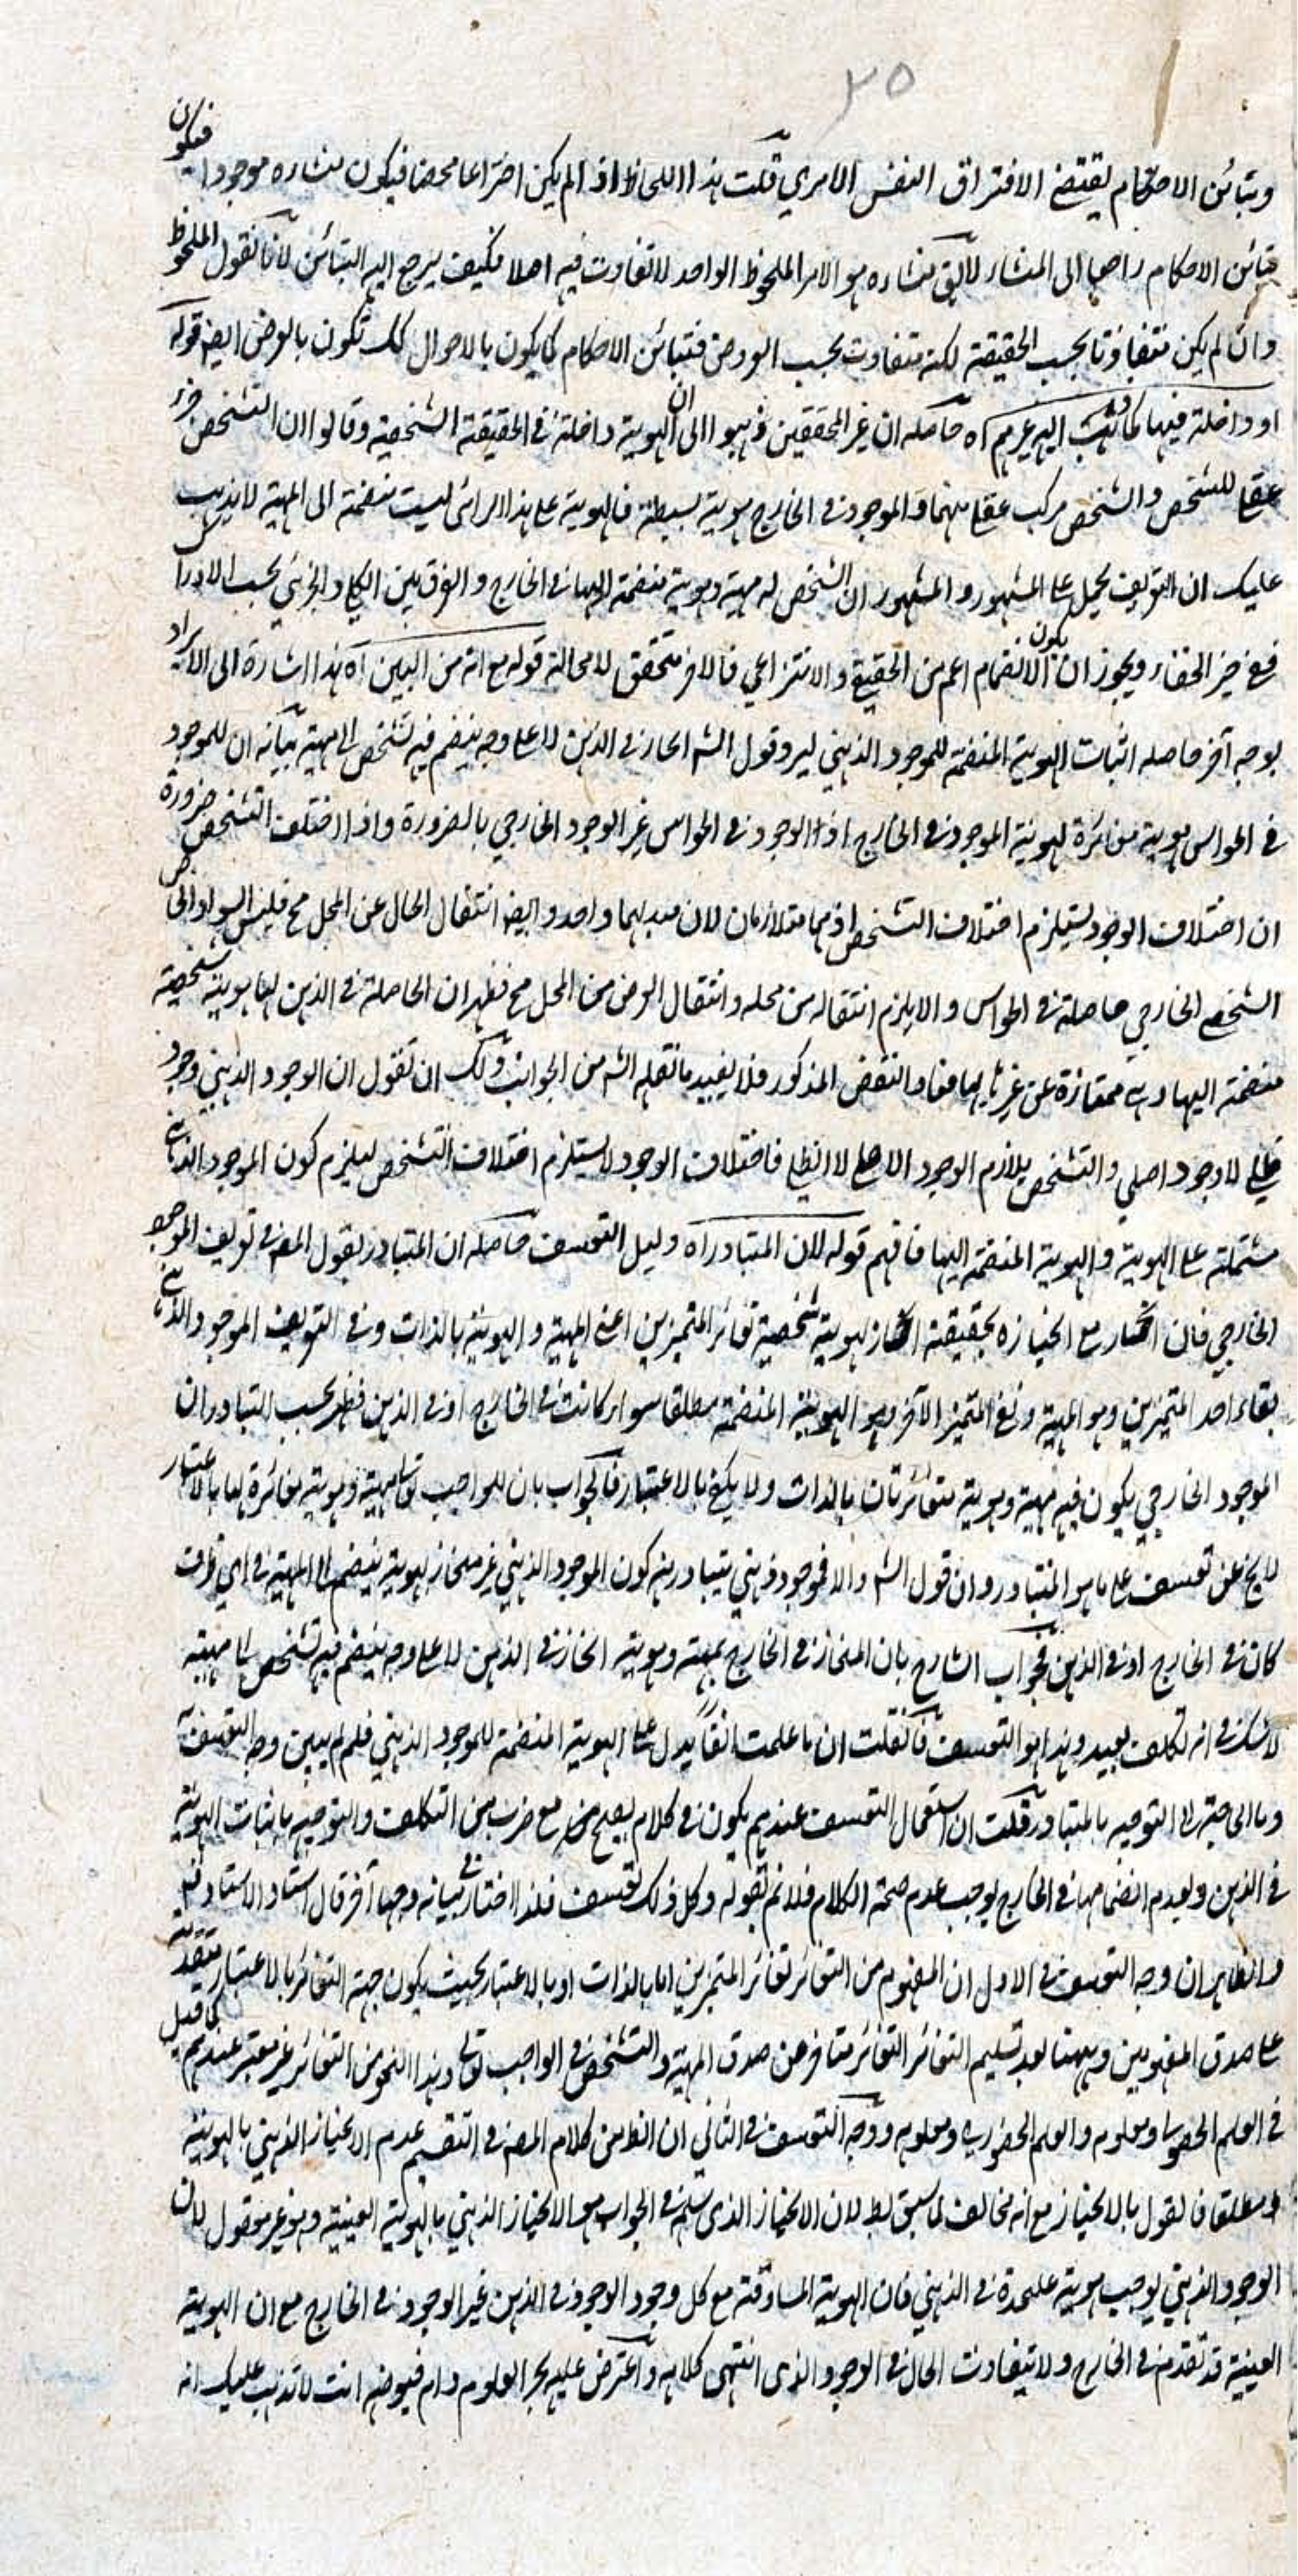 ٢٥
وتبائن الاحكام يقتضى الافتراق النفس الامري قلت هذا اللحاظ اذا لم يكن اختراعا محضا فيكون منشاءه موجودا فيكون
تبائن الاحكام راجعا الى المنشاء لا يق منشاءه هو الامر الملحوظ الواحد لا تفاوت فيه اصلا فكيف يرجع اليه التبائن لانا نقول الملحوظ
وان لم يكن متفاوتا بحسب الحقيقة لكنه متفاوت بحسب العوارض فتبائن الاحكام كما يكون بالاحوال كك تكون بالعوارض ايضا قوله
او داخلة فيها كما ذهب اليه غيرهم آه حاصله ان غير المحققين ذهبوا الى ان الهوية داخلة في الحقيقة الشخصية وقالوا ان التشخص جزء
عقلي للشخص والشخص مركب عقلا منهما والموجود في الخارج هوية بسيطة فالهوية على هذا الرائى ليست منضمة الى المهية لا يذهب
عليك ان التعريف يحمل على المشهور والمشهور ان الشخص له مهية وهوية منضمة اليها في الخارج والفرق بين الكلي والجزئي بحسب الادراك
ففي حيز الخفاء ويجوز ان يكون الانضمام اعم من الحقيقي والانتزاعي فالامر متحقق لا محالة قوله مع انه من البين آه هذا اشارة الى الايراد
بوجه آخر حاصله اثبات الهوية المنضمة للموجود الذهني ليرد قول الش انحاز في الذهن لا على وجه ينضم فيه تشخص الى مهية بيانه ان للموجود
في الحواس هوية مغائرة لهوية الموجود في الخارج اذ الوجود في الحواس غير الوجود الخارجي بالضرورة واذا اختلف التشخص ضرورة
ان اختلاف الوجود يستلزم اختلاف التشخص اذ هما متلازمان لان مبدءهما واحد وايضا انتقال الحال عن المحل مح فليس السواد
الشخصي الخارجي حاصلة في الحواس والا يلزم انتقاله من محله وانتقال العرض من المحل مح فظهر ان الحاصلة في الذهن لها هوية شخصية
منضمة اليها وبه ممتازة عن غيرها والنقض المذكور فلا يفيد ما نقله الش من الجواب ولك ان تقول ان الوجود الذهني وجود
ظلي لا وجود اصلي والتشخص يلازم الوجود الاصلي لا الظلي فاختلاف الوجود لا يستلزم اختلاف التشخص ليلزم كون الموجود الذهني
مشتملة على الهوية والهوية المنضمة اليها فافهم قوله لان المتبادر آه دليل التعسف حاصله ان المتبادر بقول المص في تعريف الموجود
الخارجي فان انحاز مع انحيازه بحقيقته انحاز بهوية شخصية تغائر المتميزين اعني المهية والهوية بالذات وفي التعريف الموجود الذهني
بقاء احد المتميزين وهو المهية ونفي المتميز الآخر وهو الهوية المنضمة مطلقا سواء كانت في الخارج او في الذهن فظهر بحسب التبادر ان
الموجود الخارجي يكون فيه مهية وهوية متغائرتان بالذات ولا يكفي بالاعتبار فالجواب بان للواجب تعالى مهية وهوية مغائرة لها بالاعتبار
لا يخ عن تعسف على ما هو المتبادر وان قول الش والا فموجود ذهني يتبادر منه كون الموجود الذهني غير منحاز بهوية ينضم الى المهية في اي ظرف
كان في الخارج او في الذهن فجواب الشارح بان المنحاز في الخارج بمهية وهوية انحاز في الذهن لا على وجه ينضم فيه تشخص الى مهيته
لا شك في انه تكلف بعيد وهذا هو التعسف فانقلت ان ما علمت انفا يدل على الهوية المنضمة للموجود الذهني فلم لم يبين وجه التعسف به
وما الى جبره الى التوجيه بالمتبادر قلت ان استعمال التعسف عندهم يكون في كلام يصلح مع ضرب من التكلف والتوجيه باثبات الهوية
في الذهن وبعدم انضمامها في الخارج يوجب عدم صحة الكلام فلا نم بقوله وكل ذلك تعسف فلذا اختار في بيانه وجها آخر قال استاد الاستاد
والظاهر ان وجه التعسف في الاول ان المفهوم من التغائر تغائر المتميزين اما بالذات او بالاعتبار بحيث يكون جهة التغائر بالاعتبار متقدمة
على صدق المفهومين وههنا بعد تسليم التغائر التغائر متاخر عن صدق المهية والتشخص في الواجب تعالى وهذا النحو من التغائر غير معتبر عندهم كما قيل
في العلم الحصولي ومعلومه والعلم الحضوري ومعلومه ووجه التعسف في الثاني ان الظ من كلام المص في التقسيم عدم الانحياز الذهني بالهوية
مطلقا فالقول بالانحياز مع انه مخالف لما سبق لان الانحياز الذي سلم في الجواب هو الانحياز الذهني بالهوية العينية وهو غير معقول لان
الوجود الذهني يوجب هوية عليحدة في الذهن فان الهوية المساوقة مع كل وجود الوجود في الذهن غير الوجود في الخارج مع ان الهوية
العينية قد تقدم في الخارج ولا يتفاوت الحال في الوجود الذي انتهى كلامه واعترض عليه بحر العلوم دام فيوضه انت لا تذهب عليك انه